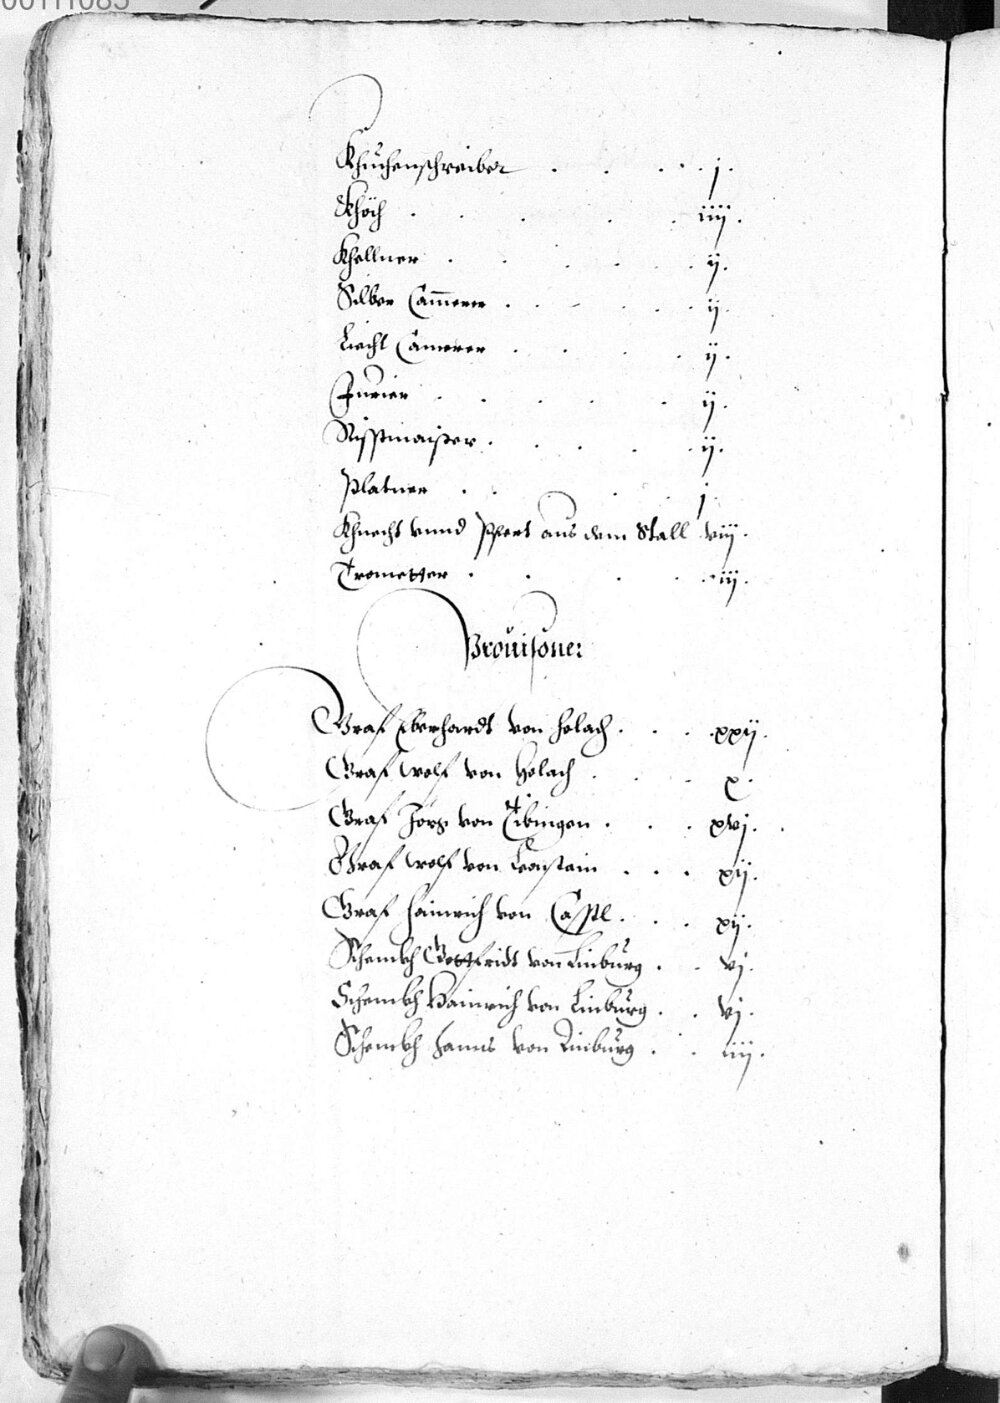 Khuchenschreiber . . . . j .
Khöch . . . . . iiij .
Khellner . . . . . ij .
Silber Camerer . . . . ij .
Liecht Camerer . . . . ij .
Furier . . . . . ij .
Rysstmaister . . . . ij .
Platner . . . . j
Khnecht vnnd Pfert aus dem Stall viij .
Trometter . . . . iij .
Prouisoner
Graf Eberhardt von Holach . . . xxij .
Graf Wolf von Holach . . . x .
Graf Jörg von Tibingen . . . xvj .
Graf Wolf von Leonstain . . . xij .
Graf Hainrich von Casstl . . . xij .
Schenkh Gottfridt vonn Linburg . . vj .
Schenkh Hainrich von Linburg . . vj .
Schenkh Hanns von Linburg . . iiij .